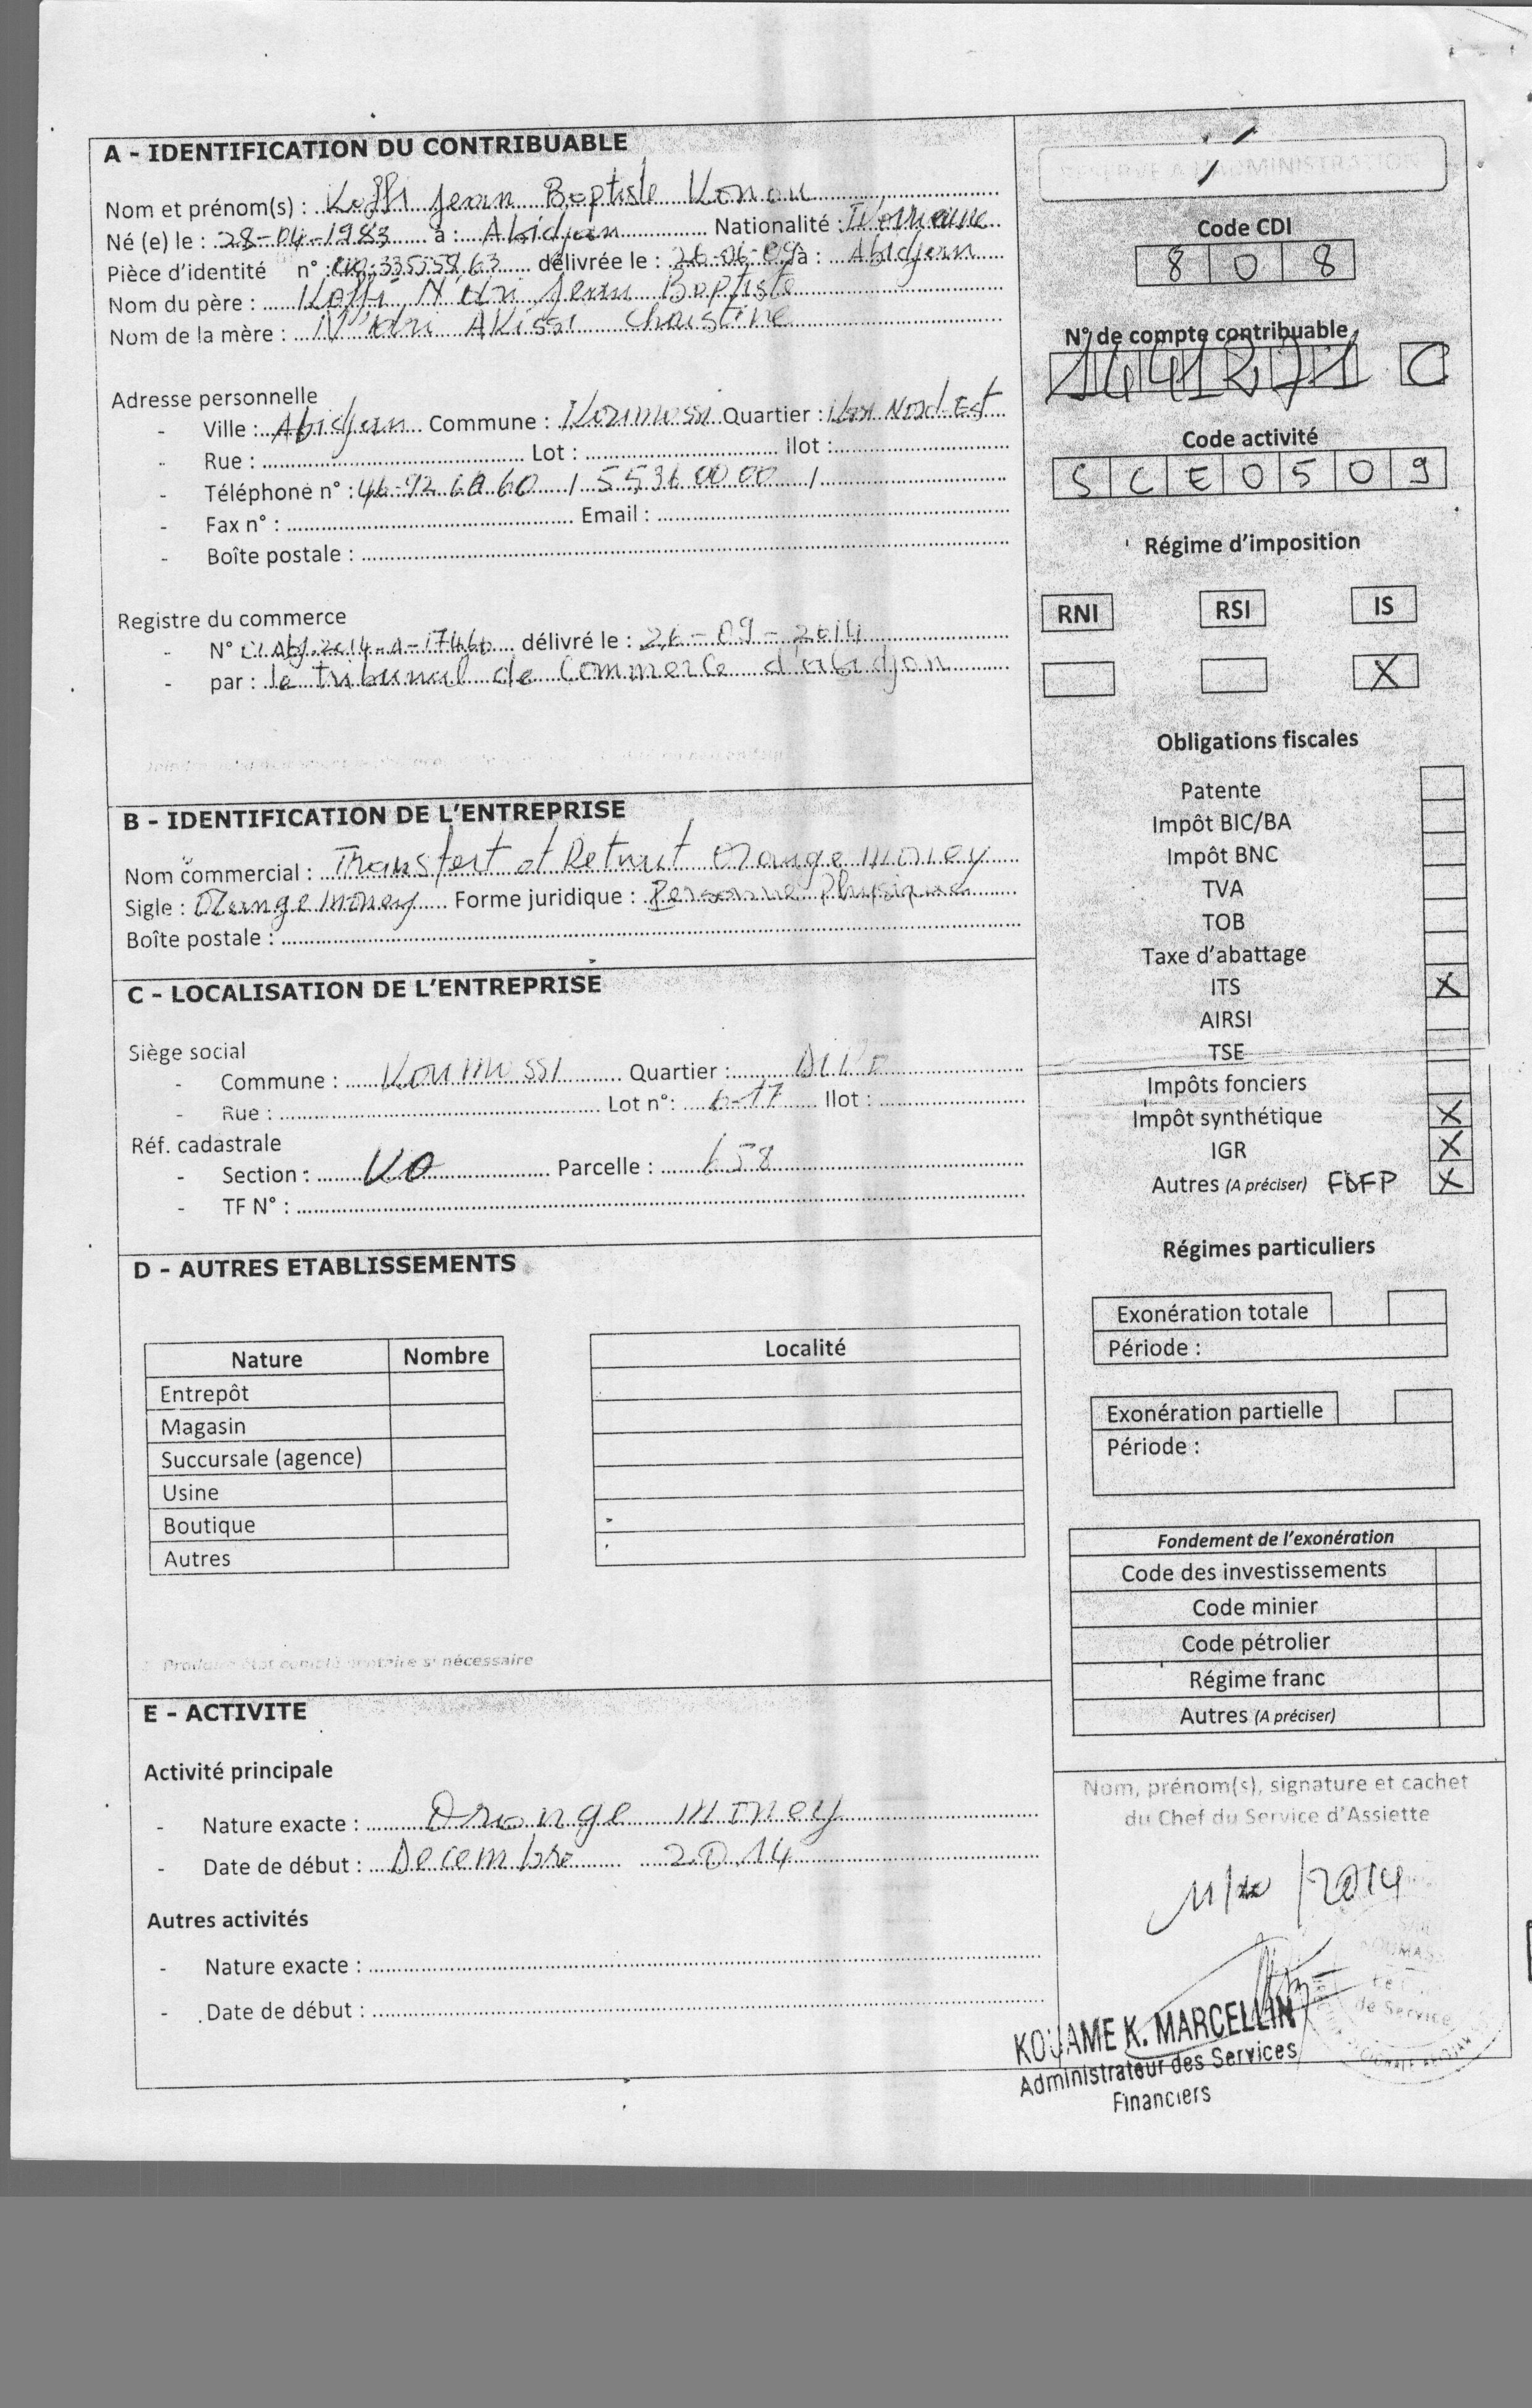 A - IDENTIFICATION DU CONTRIBUABLE
Nom et prénom(s) : Koffi Jean Baptiste Konan
Né (e) le : 28-04-1983 à : Abidjan Nationalité : Ivoirienne
Pièce d'identité n° : délivrée le : 26-06-09 à : Abidjan
Nom du père : Koffi N'dri Jean Baptiste
Nom de la mère : N'dri AKissi Christine
Adresse personnelle
- Ville : Abidjan Commune : Koumassi Quartier : Nord Est
- Rue : Lot : Ilot :
- Téléphone n° : / 55360000 /
- Fax n° : Email :
- Boîte postale :
Registre du commerce
- N° CI Abj. 2014-A-17460 délivré le : 26-09-2014
- par : le tribunal de Commerce d'abidjan
B - IDENTIFICATION DE L'ENTREPRISE
Nom commercial : Transfert et Retrait Orange money
Sigle : Orange money Forme juridique : Personne Physique
Boîte postale :
C - LOCALISATION DE L'ENTREPRISE
Siège social
- Commune : Koumassi Quartier :
- Rue : Lot n°: Ilot :
Réf. cadastrale
- Section : KO Parcelle : 658
- TF N° :
D - AUTRES ETABLISSEMENTS
Nature Nombre Localité
Entrepôt
Magasin
Succursale (agence)
Usine
Boutique
Autres
Produire état complémentaire si nécessaire
E - ACTIVITE
Activité principale
- Nature exacte : Orange money
- Date de début : Decembre 2014
Autres activités
- Nature exacte :
- Date de début :
RESERVE A L'ADMINISTRATION
Code CDI
8 0 8
N° de compte contribuable
1441271 C
Code activité
S C E 0 5 0 9
Régime d'imposition
RNI RSI IS
X
Obligations fiscales
Patente
Impôt BIC/BA
Impôt BNC
TVA
TOB
Taxe d'abattage
ITS X
AIRSI
TSE
Impôts fonciers
Impôt synthétique X
IGR X
Autres (A préciser) FDFP X
Régimes particuliers
Exonération totale
Période :
Exonération partielle
Période :
Fondement de l'exonération
Code des investissements
Code minier
Code pétrolier
Régime franc
Autres (A préciser)
Nom, prénom(s), signature et cachet
du Chef du Service d'Assiette
/2014
KOUAME K. MARCELLIN
Administrateur des Services
Financiers
de Service